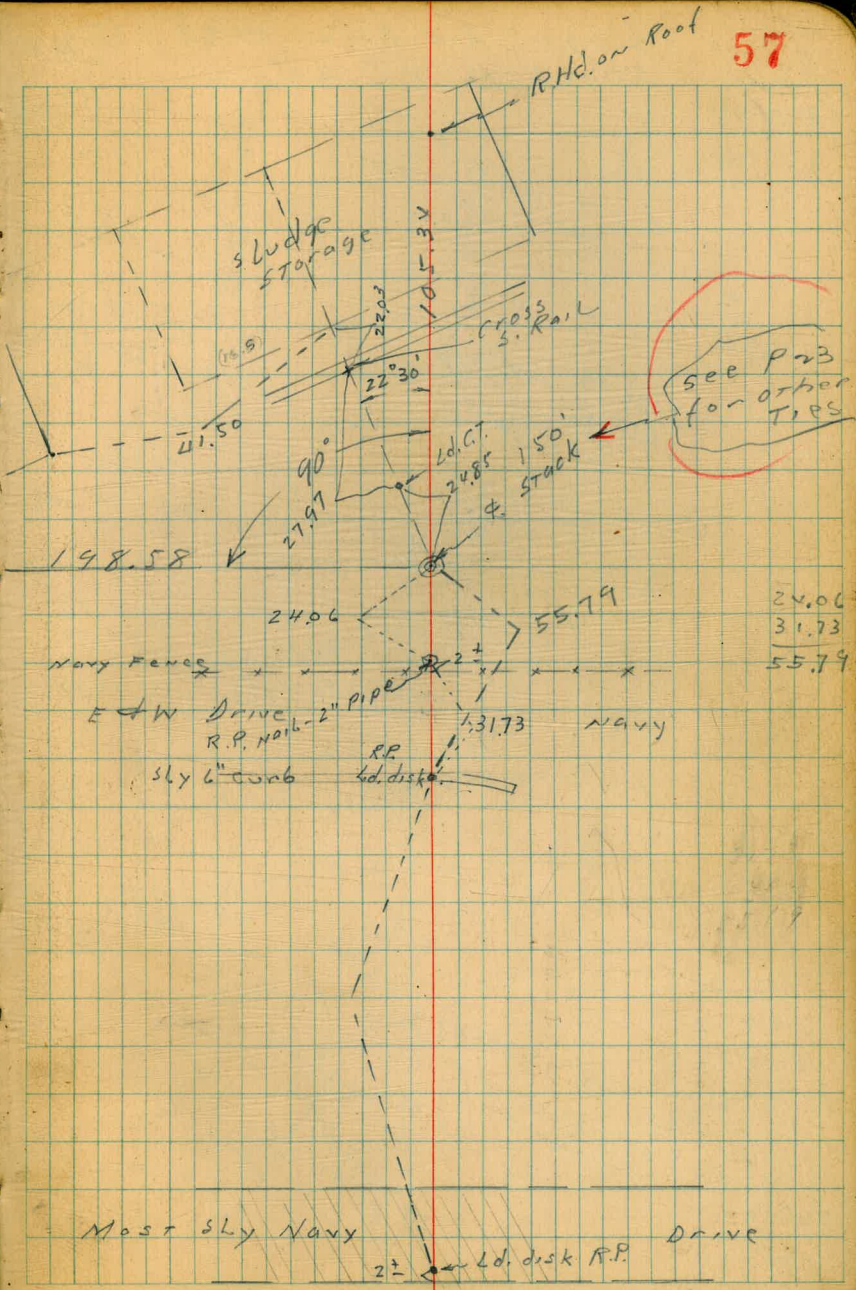 57
R.Hd. on Roof
Sludge
Storage
105.34
22.03
Cross
S. Rail
(15.5)
22°30'
See P 23
for other
Ties
41.50
90°
Ld.C.T.
24.85
150'
₵. Stack
27.97
198.58
24.06
55.79
24.06
31.73
55.79
Navy Fence
2±
E & W Drive
R.P. Nail - 2" Pipe
31.73
Navy
R.P.
Sly 6" curb
Ld. disk
Most Sly Navy
Drive
2±
Ld. disk R.P.